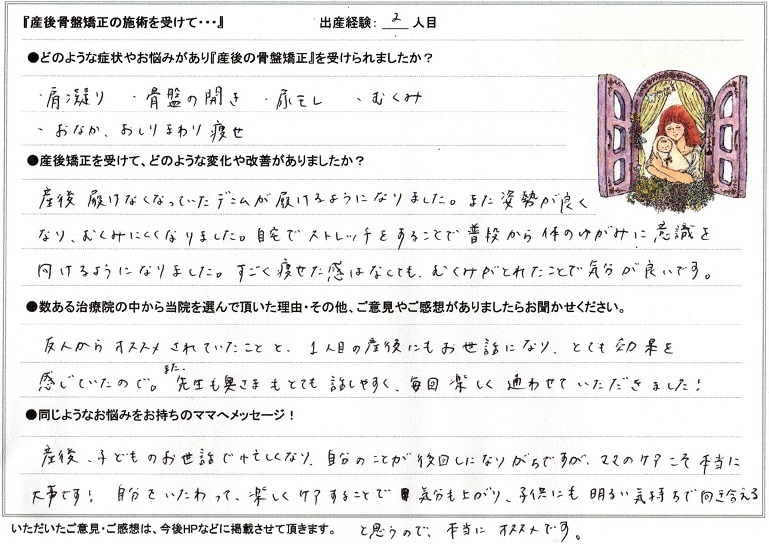 『産後骨盤矯正の施術を受けて・・・』 出産経験： 2 人目
●どのような症状やお悩みがあり『産後の骨盤矯正』を受けられましたか？
・肩凝り ・骨盤の開き ・尿モレ ・むくみ
・おなか、おしりまわり痩せ
●産後矯正を受けて、どのような変化や改善がありましたか？
産後 履けなくなっていたデニムが履けるようになりました。また姿勢が良く
なり、むくみにくくなりました。自宅でストレッチをすることで普段から体のゆがみに意識を
向けるようになりました。すごく痩せた感はなくても、むくみがとれたことで気分が良いです。
●数ある治療院の中から当院を選んで頂いた理由・その他、ご意見やご感想がありましたらお聞かせください。
友人からオススメされていたことと、1人目の産後にもお世話になり、とても効果を
感じていたので。また、先生も奥さまもとても話しやすく、毎回楽しく通わせていただきました！
●同じようなお悩みをお持ちのママへメッセージ！
産後、子どものお世話で忙しくなり、自分のことが後回しになりがちですが、ママのケアこそ本当に
大事です！ 自分をいたわって、楽しくケアすることで気分も上がり、子供にも明るい気持ちで向き合える
いただいたご意見・ご感想は、今後HPなどに掲載させて頂きます。 と思うので、本当にオススメです。